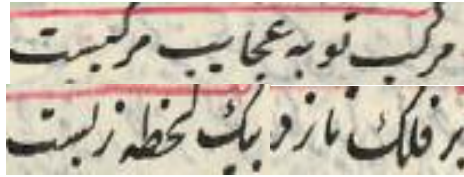 مرکب توبه عجایب مرکبیست
بر فلک تازد بیک لحظه ز پست